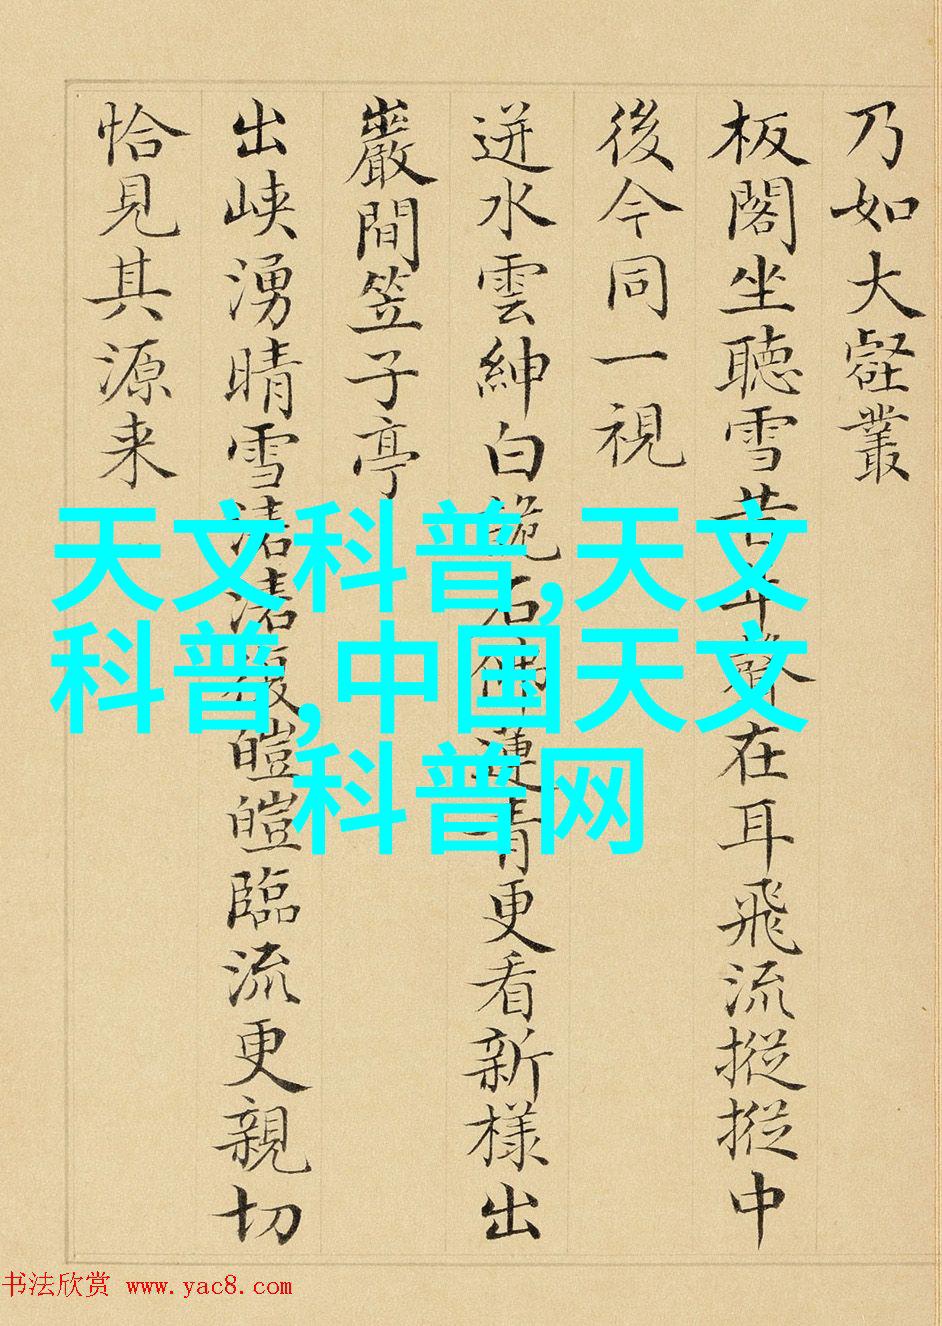 乃如大壑叢
板閣坐聽雪昔年聲在耳飛流摐摐中
後今同一視
迸水雲紳白 石佛蓮青更看新樣出
巖間笠子亭
出峽湧晴雪 復皚皚臨流更親切
恰見其源来
天文科普,天文
科普,中国天文
科普网
书法欣赏 www.yac8.com